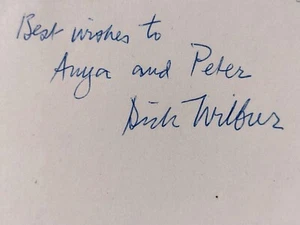 Best wishes to
Anya and Peter
Dick Wilbur